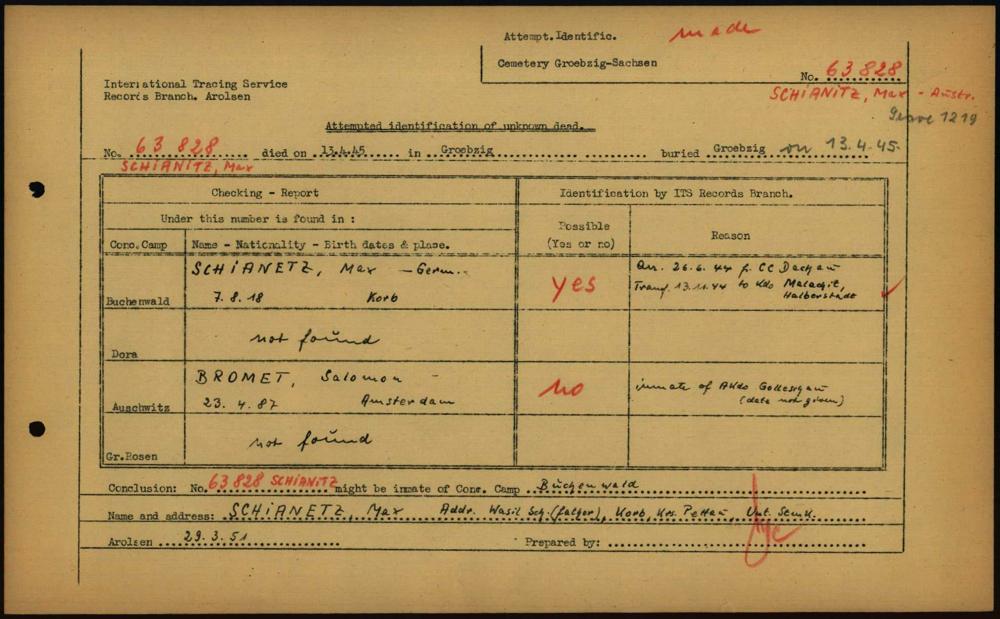 Attempt.Identific. made
Cemetery Groebzig-Sachsen
No. 63 828
SCHIANITZ, Max - Austr.
Grave 1219
International Tracing Service
Records Branch. Arolsen
Attempted identification of unknown dead.
No. 63 828 died on 13.4.45 in Groebzig buried Groebzig on 13.4.45
SCHIANITZ, Max
Checking - Report
Identification by ITS Records Branch.
Under this number is found in :
Possible
(Yes or no)
Reason
Conc.Camp
Name - Nationality - Birth dates & place.
SCHIANETZ, Max - Germ.
7.8.18 Korb
Buchenwald
yes
Arr. 26.6.44 f. CC Dachau
Transf. 13.11.44 to Kdo Malachit,
Halberstadt
not found
Dora
BROMET, Salomon
23.4.87 Amsterdam
Auschwitz
no
inmate of AKdo
(date not given)
not found
Gr.Rosen
Conclusion: No. 63 828 SCHIANITZ might be inmate of Conc. Camp Buchenwald
Name and address: SCHIANETZ, Max Addr. Wasil Sch. (father), Korb, Krs. Pettau, Unt.
Arolsen 29.3.51 Prepared by: